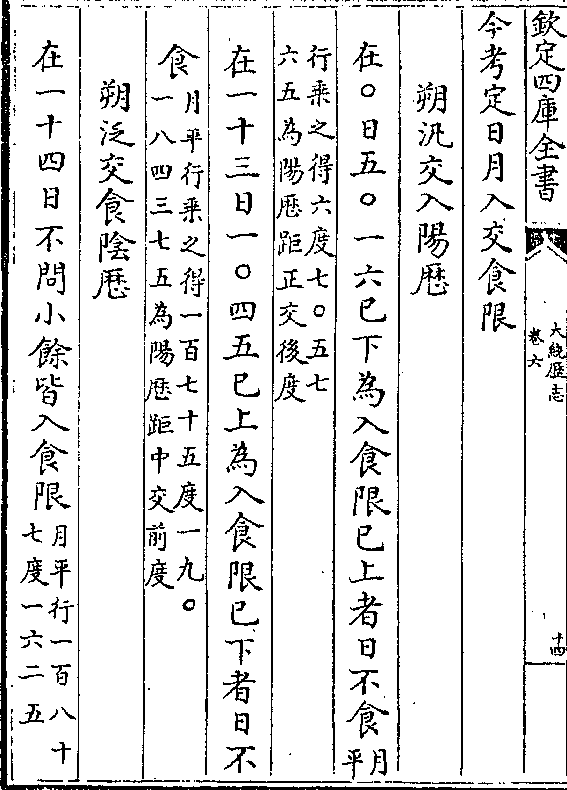 欽定四庫全書
大統厯志
卷六
十四
今考定日月入交食限
朔汎交入陽厯
在〇日五〇一六已下為入食限已上者日不食
月
平
行乗之得六度七〇五七
六五為陽厯距正交後度
在一十三日一〇四五已上為入食限已下者日不
食
月平行乗之得一百七十五度一九〇
一八四三七五為陽厯距中交前度
朔泛交食陰厯
在一十四日不問小餘皆入食限
月平行一百八十
七度一六二五